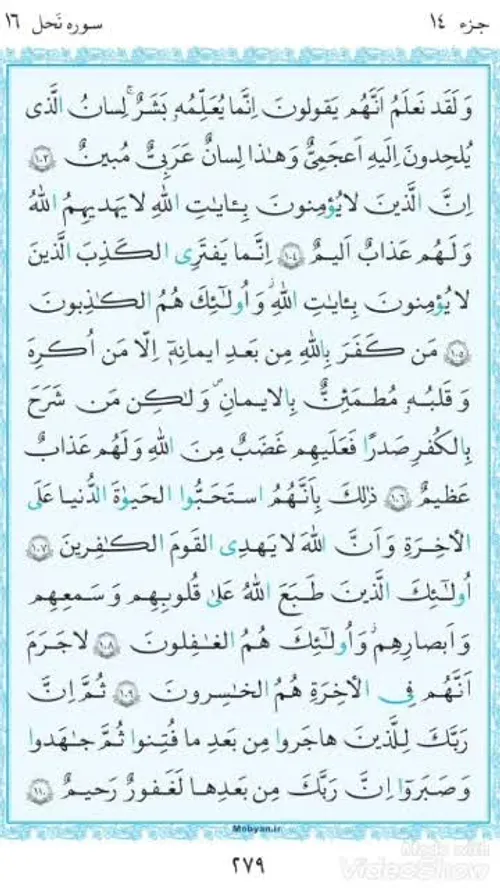 جزء ١٤
سوره نَحل ١٦
وَ لَقَد نَعلَمُ اَنَّهُم يَقولونَ اِنَّما يُعَلِّمُهٗ بَشَرٌ ۗ لِسانُ الَّذى
يُلحِدونَ اِلَيهِ اَعجَمِىٌّ وَ هٰذا لِسانٌ عَرَبِىٌّ مُبينٌ ﴿١٠٣﴾
اِنَّ الَّذينَ لا يُؤمِنونَ بِـٔايٰتِ اللّٰهِ لا يَهديهِمُ اللّٰهُ
وَ لَهُم عَذابٌ اَليمٌ ﴿١٠٤﴾ اِنَّما يَفتَرِى الكَذِبَ الَّذينَ
لا يُؤمِنونَ بِـٔايٰتِ اللّٰهِ ۖ وَ اُولٰٓئِكَ هُمُ الكٰذِبونَ
﴿١٠٥﴾ مَن كَفَرَ بِاللّٰهِ مِن بَعدِ ايمانِهٖٓ اِلّا مَن اُكرِهَ
وَ قَلبُهٗ مُطمَئِنٌّ بِالايمانِ وَ لٰكِن مَن شَرَحَ
بِالكُفرِ صَدرًا فَعَلَيهِم غَضَبٌ مِنَ اللّٰهِ وَ لَهُم عَذابٌ
عَظيمٌ ﴿١٠٦﴾ ذٰلِكَ بِاَنَّهُمُ استَحَبُّوا الحَيوٰةَ الدُّنيا عَلَى
الاٰخِرَةِ وَ اَنَّ اللّٰهَ لا يَهدِى القَومَ الكٰفِرينَ ﴿١٠٧﴾
اُولٰٓئِكَ الَّذينَ طَبَعَ اللّٰهُ عَلىٰ قُلوبِهِم وَ سَمعِهِم
وَ اَبصارِهِم ۖ وَ اُولٰٓئِكَ هُمُ الغٰفِلونَ ﴿١٠٨﴾ لا جَرَمَ
اَنَّهُم فِى الاٰخِرَةِ هُمُ الخٰسِرونَ ﴿١٠٩﴾ ثُمَّ اِنَّ
رَبَّكَ لِلَّذينَ هاجَروا مِن بَعدِ ما فُتِنوا ثُمَّ جٰهَدوا
وَ صَبَرَوٓا اِنَّ رَبَّكَ مِن بَعدِها لَغَفورٌ رَحيمٌ ﴿١١٠﴾
Mobyan.ir
٢٧٩
Made with
VideoShow